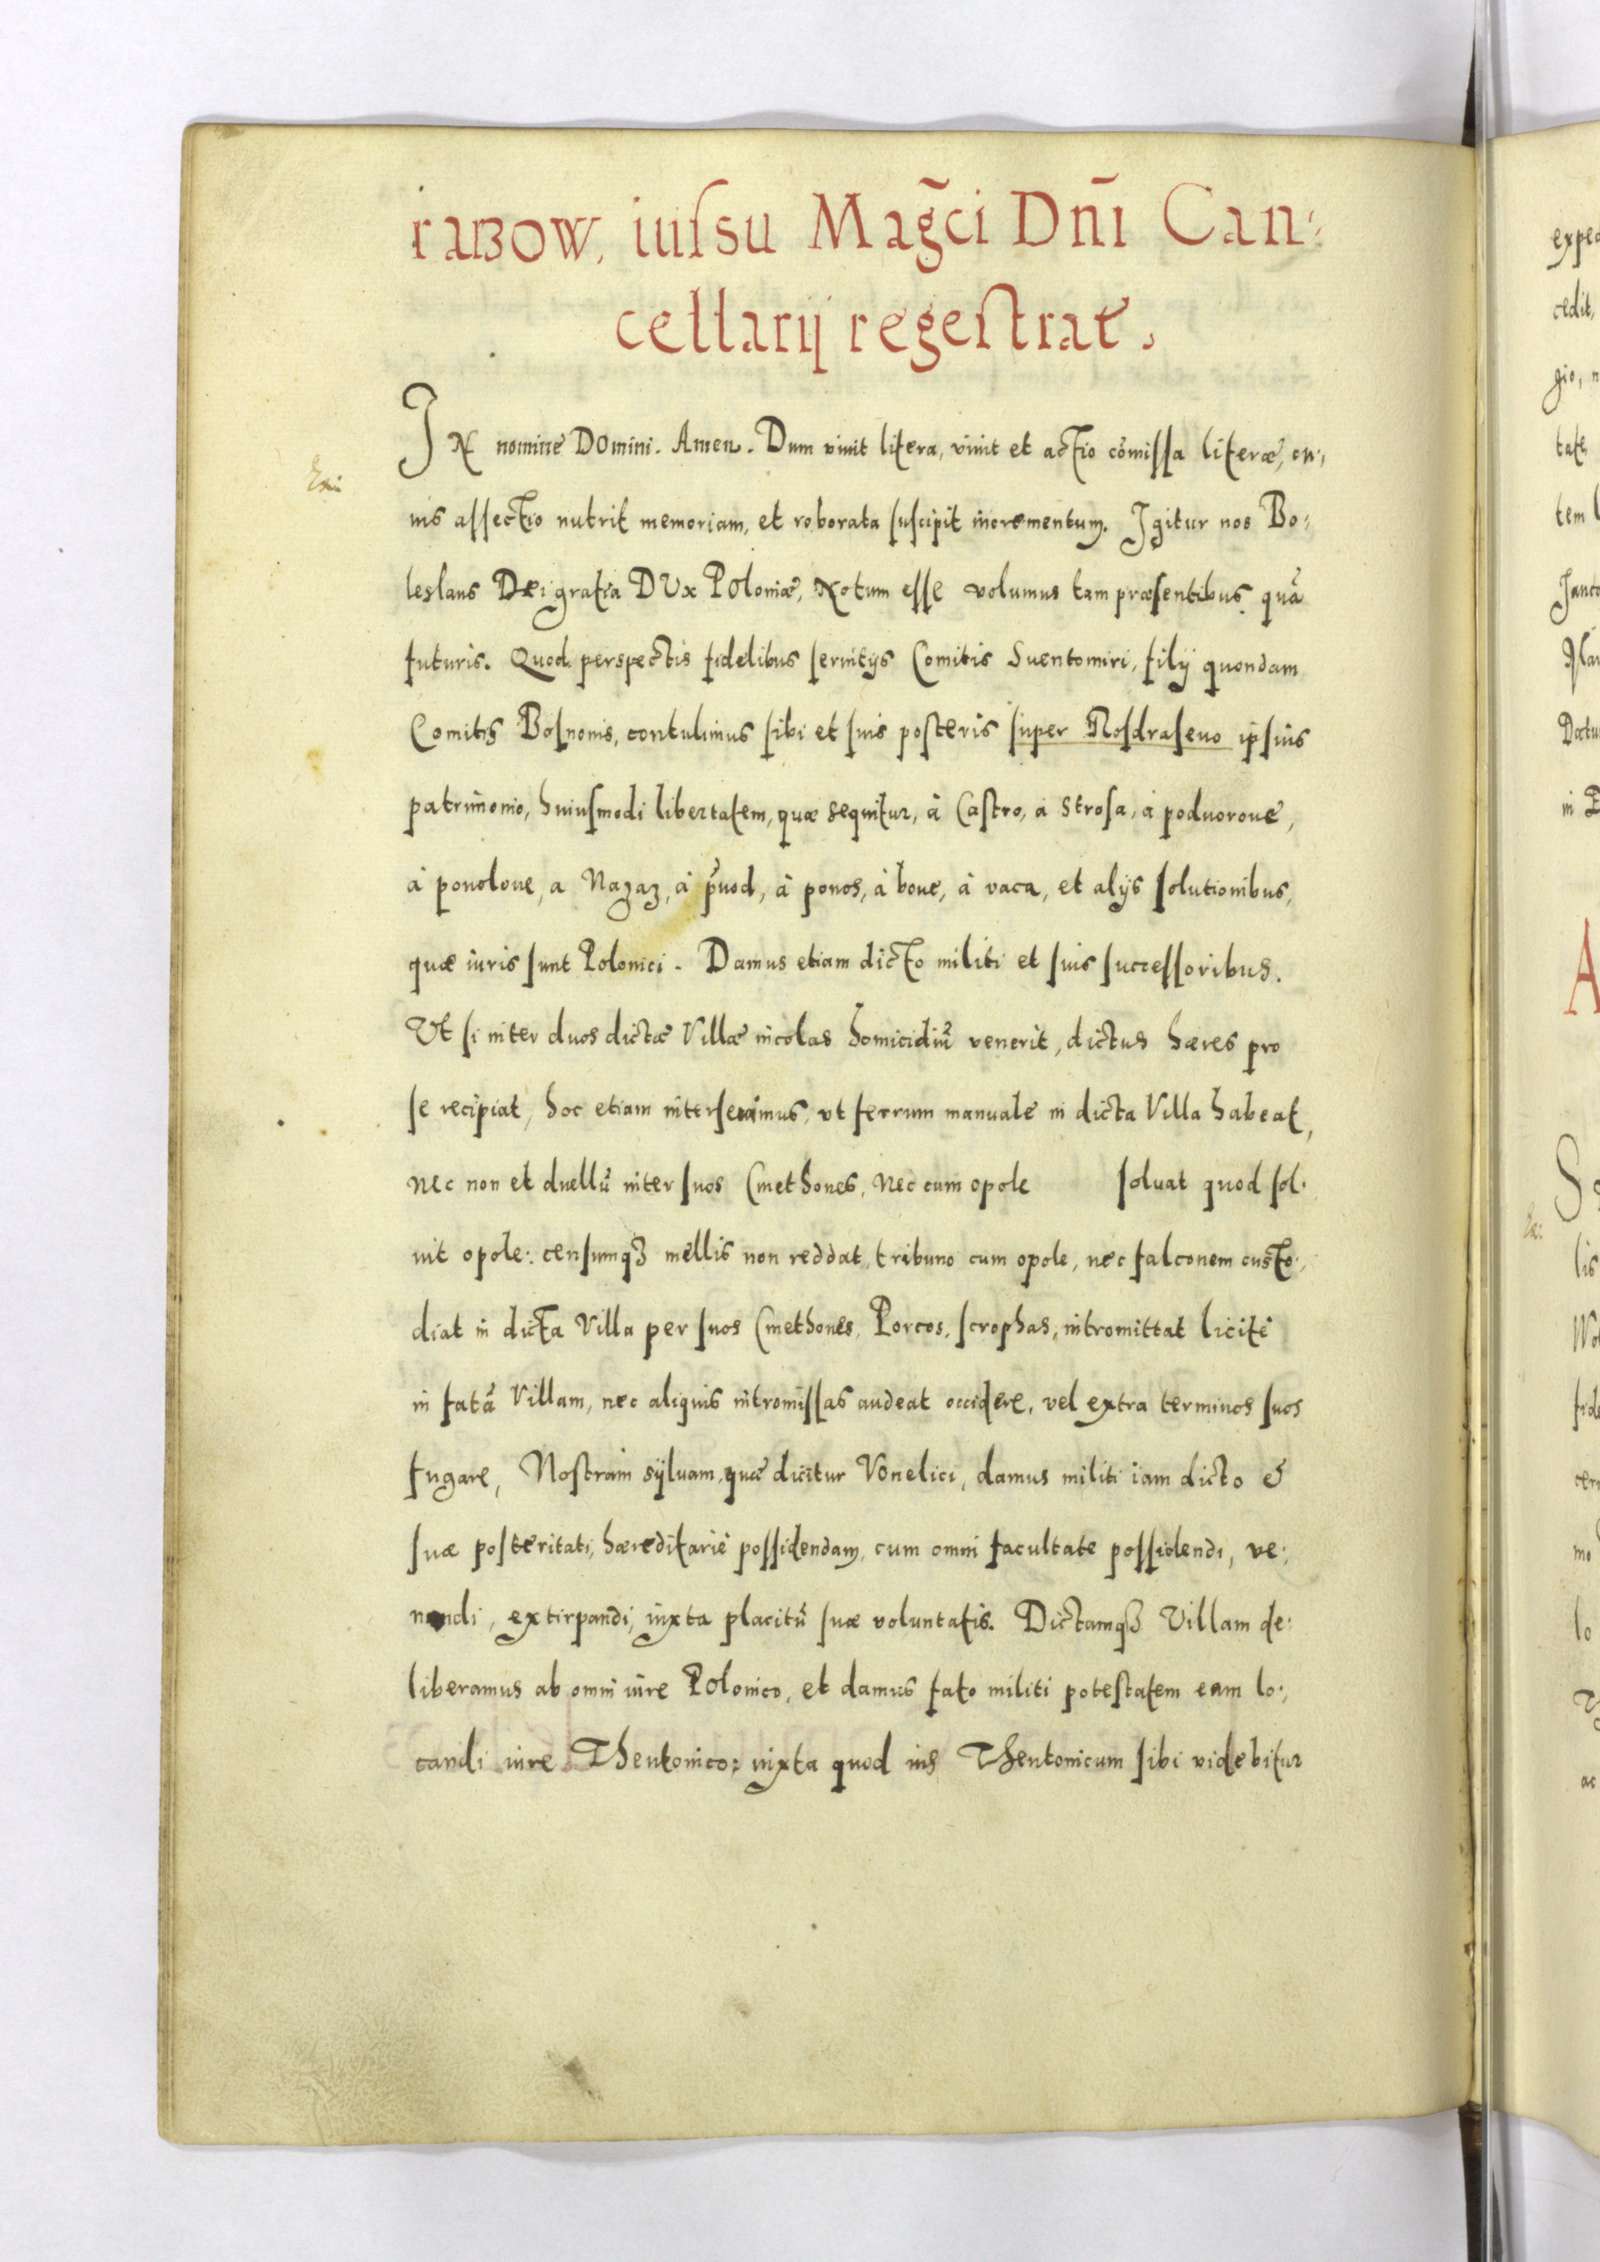 raBow, iussu Mag̃ci Dñi Can-
cellarij regestrate.
IN nomine Domini. Amen. Dum viuit litera, viuit et actio cõmissa literæ, cu-
ius assectio nutrit memoriam, et roborata suscipit incrementum. Igitur nos Bo-
leslaus Dei gratia DUx Poloniæ, Notum esse volumus tam præsentibus quã
futuris. Quod perspectis fidelibus seruitijs Comitis Suentomiri, filij quondam
Comitis Bosnonis, contulimus sibi et suis posteris super Rosdraseuo ipsius
patrimonio, huiusmodi libertatem, quæ sequitur, à Castro, à Strosa, à poduoroue,
à pouoloue, a Nazaz, à p̃uod, à ponos, à boue, à vaca, et alijs solutionibus,
quæ iuris sunt Polonici. Damus etiam dicto militi et suis successoribus.
Vt si inter duos dictæ Villæ incolas homicidiũ venerit, dictus hæres pro
se recipiat, hoc etiam interserimus, vt ferrum manuale in dicta Villa habeat,
nec non et duellũ inter suos Cmethones, Nec cum opole soluat quod sol-
uit opole: censumqȝ mellis non reddat, tribuno cum opole, nec falconem custo-
diat in dicta Villa per suos Cmethones, Porcos, scrophas, intromittat licitè
in fatã Villam, nec aliquis intromissas audeat occidere, vel extra terminos suos
fugare, Nostram syluam quæ dicitur Vonelici, damus militi iam dicto &
suæ posteritati, hæreditariè possidendam, cum omni facultate possidendi, ve-
nandi, extirpandi, iuxta placitũ suæ voluntatis. Dictamqȝ Villam de-
liberamus ab omni iure Polonico, et damus fato militi potestatem eam lo-
candi iure Theutonico: iuxta quod ius Theutonicum sibi videbitur